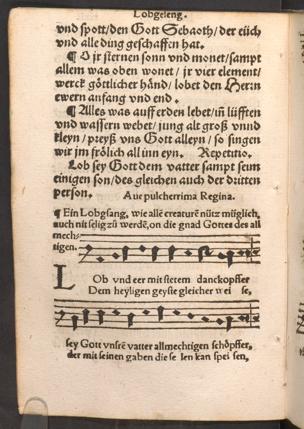 Lobgeseng.
vnd spott/den Gott Sebaoth/der eüch
vnd alle ding geschaffen hat.
¶ O jr sternen sonn vnd monet/sampt
allem was oben wonet/ jr vier element/
werck götlicher händ/ lobet den Herrn
ewern anfang vnd end.
¶ Alles was auff erden lebet/iñ lüfften
vnd wassern webet/ jung alt groß vnnd
kleyn/ preyß vns Gott alleyn/ so singen
wir jm frölich all inn eyn. Repetitio.
Lob sey Gott dem vatter sampt seim
einigen son/des gleichen auch der dritten
person. Aue pulcherrima Regina.
¶ Ein Lobgsang, wie allē creaturē nütz müglich,
auch nit selig zů werdē, on die gnad Gottes des all
mech-
tigen.
LOb vnd eer mit stetem danckopffer
Dem heyligen geyste gleicher wei se,
sey Gott vnsrē vatter allmechtigen schöpffer,
der mit seinen gaben die se len kan spei sen,